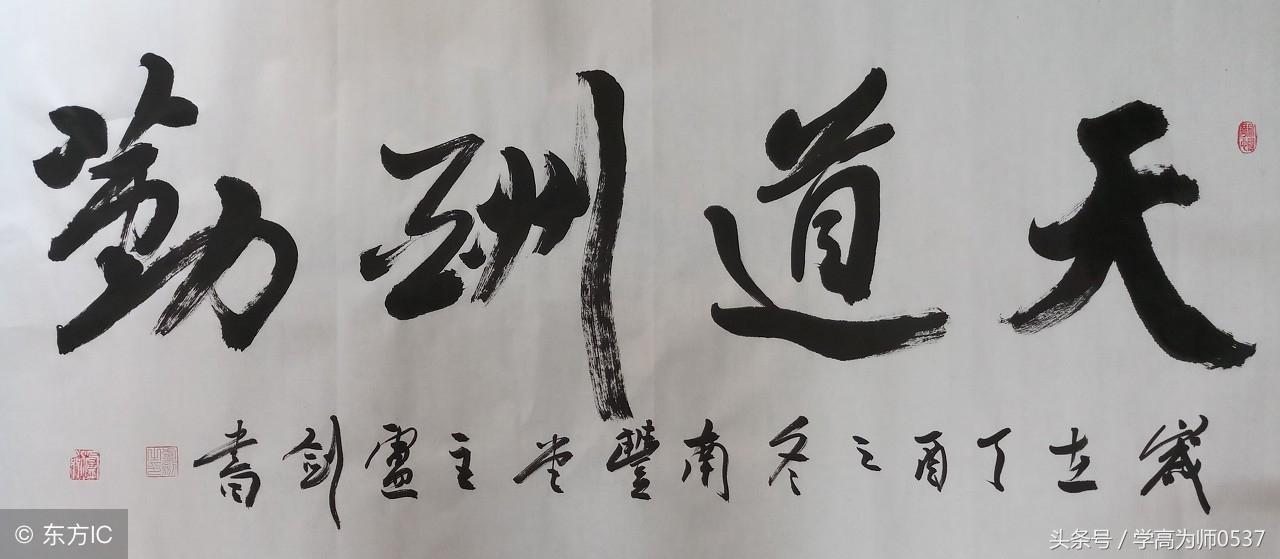 天道酬勤
歲在丁酉之冬南豐堂主盧劍書
© 东方IC
头条号 / 学高为师0537